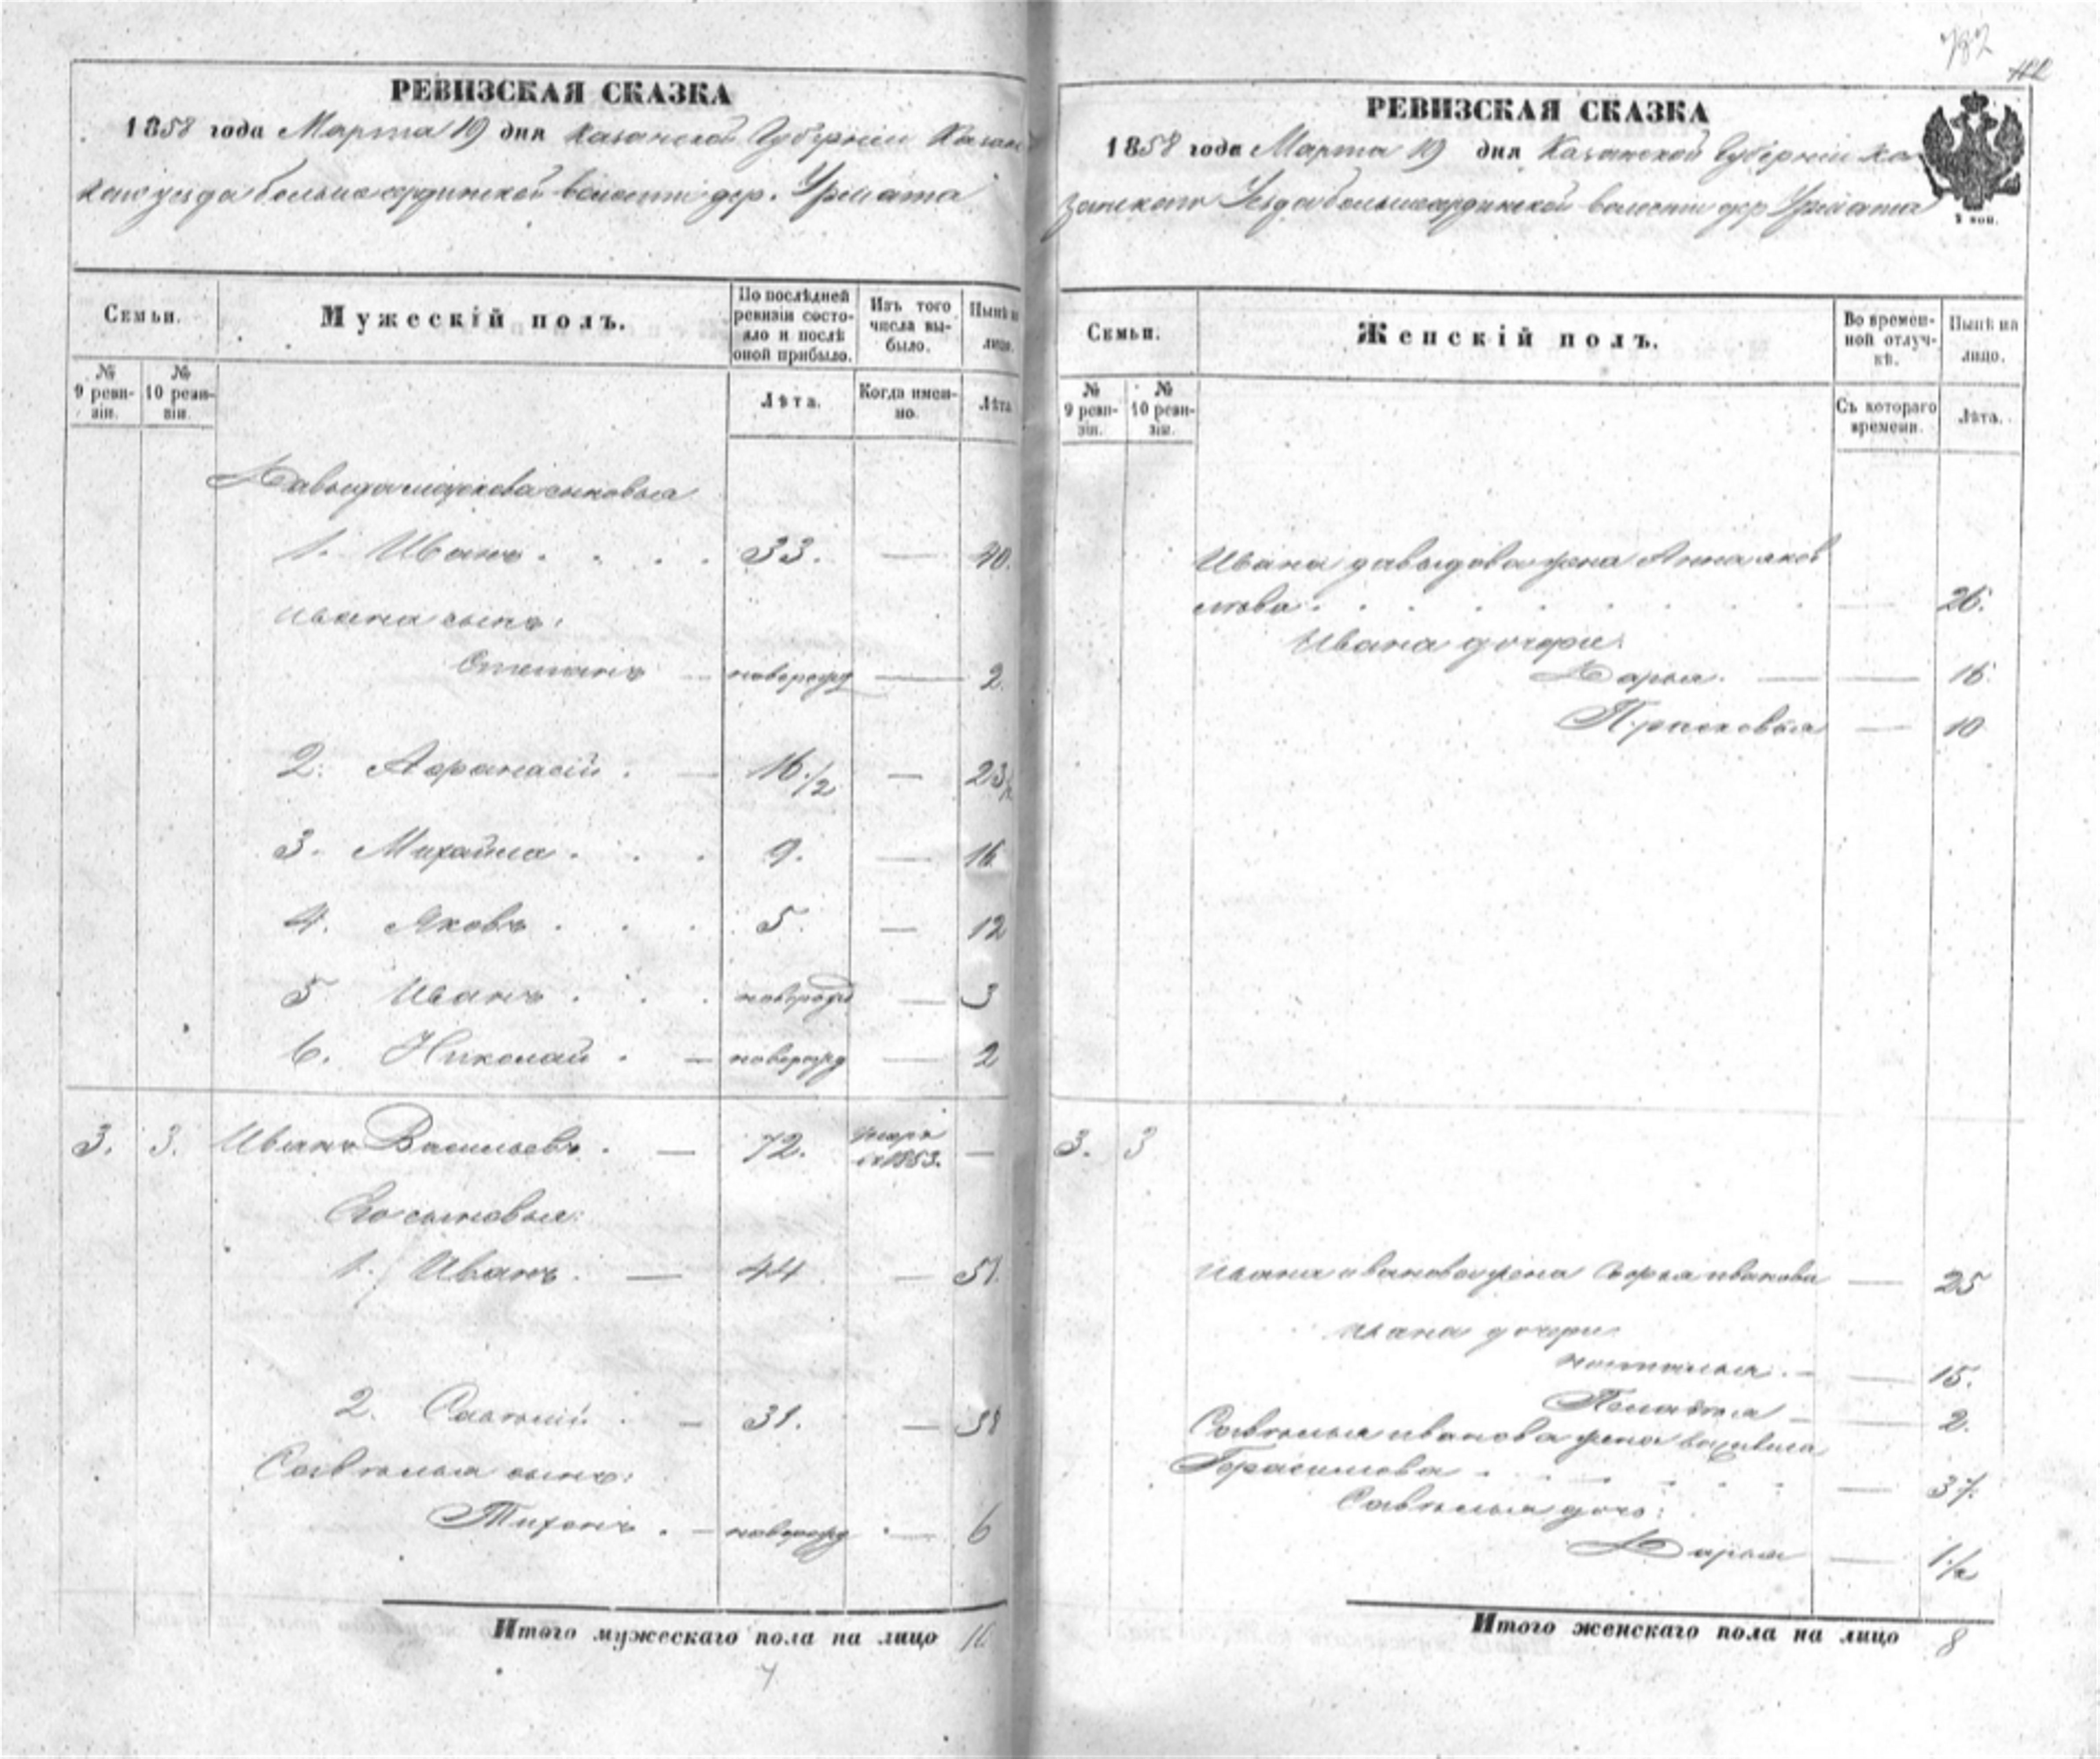 782
112
РЕВИЗСКАЯ СКАЗКА
1858 года Марта 19 дня Казанской Губерніи Казан
скаго уезда большеардинской волости дер. Урмата
Семьи.
Мужескій полъ.
По послѣдней ревизіи состояло и послѣ оной прибыло.
Изъ того числа выбыло.
Нынѣ на лицо.
№ 9 ревизіи.
№ 10 ревизіи.
Лѣта.
Когда именно.
Лѣта
Давыда сыновья
1. Иванъ . . . . 33. — 40.
Ивана сынъ:
Степанъ —новорожд — 2.
2. Афанасій . — 16 1/2 — 23 1/2
3. Михайла . . . 9. — 16
4. Яковъ . . . 5. — 12
5 Иванъ . . . новорожд — 3
6. Николай . — новорожд — 2
3. 3. Иванъ Васильевъ . — 72. умеръ въ 1853. —
Его сыновья:
1. Иванъ . — 44 — 51.
2. Савелій . — 31. — 38
Савелья сынъ:
Тихонъ . — новорожд — 6
Итого мужескаго пола на лицо
РЕВИЗСКАЯ СКАЗКА
1858 года Марта 19 дня Казанской Губерніи Ка
занскаго Уезда большеардинской волости дер Урмата
3 коп.
Семьи.
Женскій полъ.
Во временной отлучкѣ.
Нынѣ на лицо.
№ 9 ревизіи.
№ 10 ревизіи.
Съ котораго времени.
Лѣта.
Ивана давыдова жена Анна яков
лева . . . . . . . . — 26.
Ивана дочери:
Дарья. — — 16.
Прасковья — 10
3. 3
Ивана иванова жена иванова — 25
Ивана дочери
Наталья . — — 15.
Пелагея — — 2.
Савелья иванова жена
Герасимова . . . . . . — 37.
Савелья дочь:
Дарья — 1 1/2
Итого женскаго пола на лицо 8